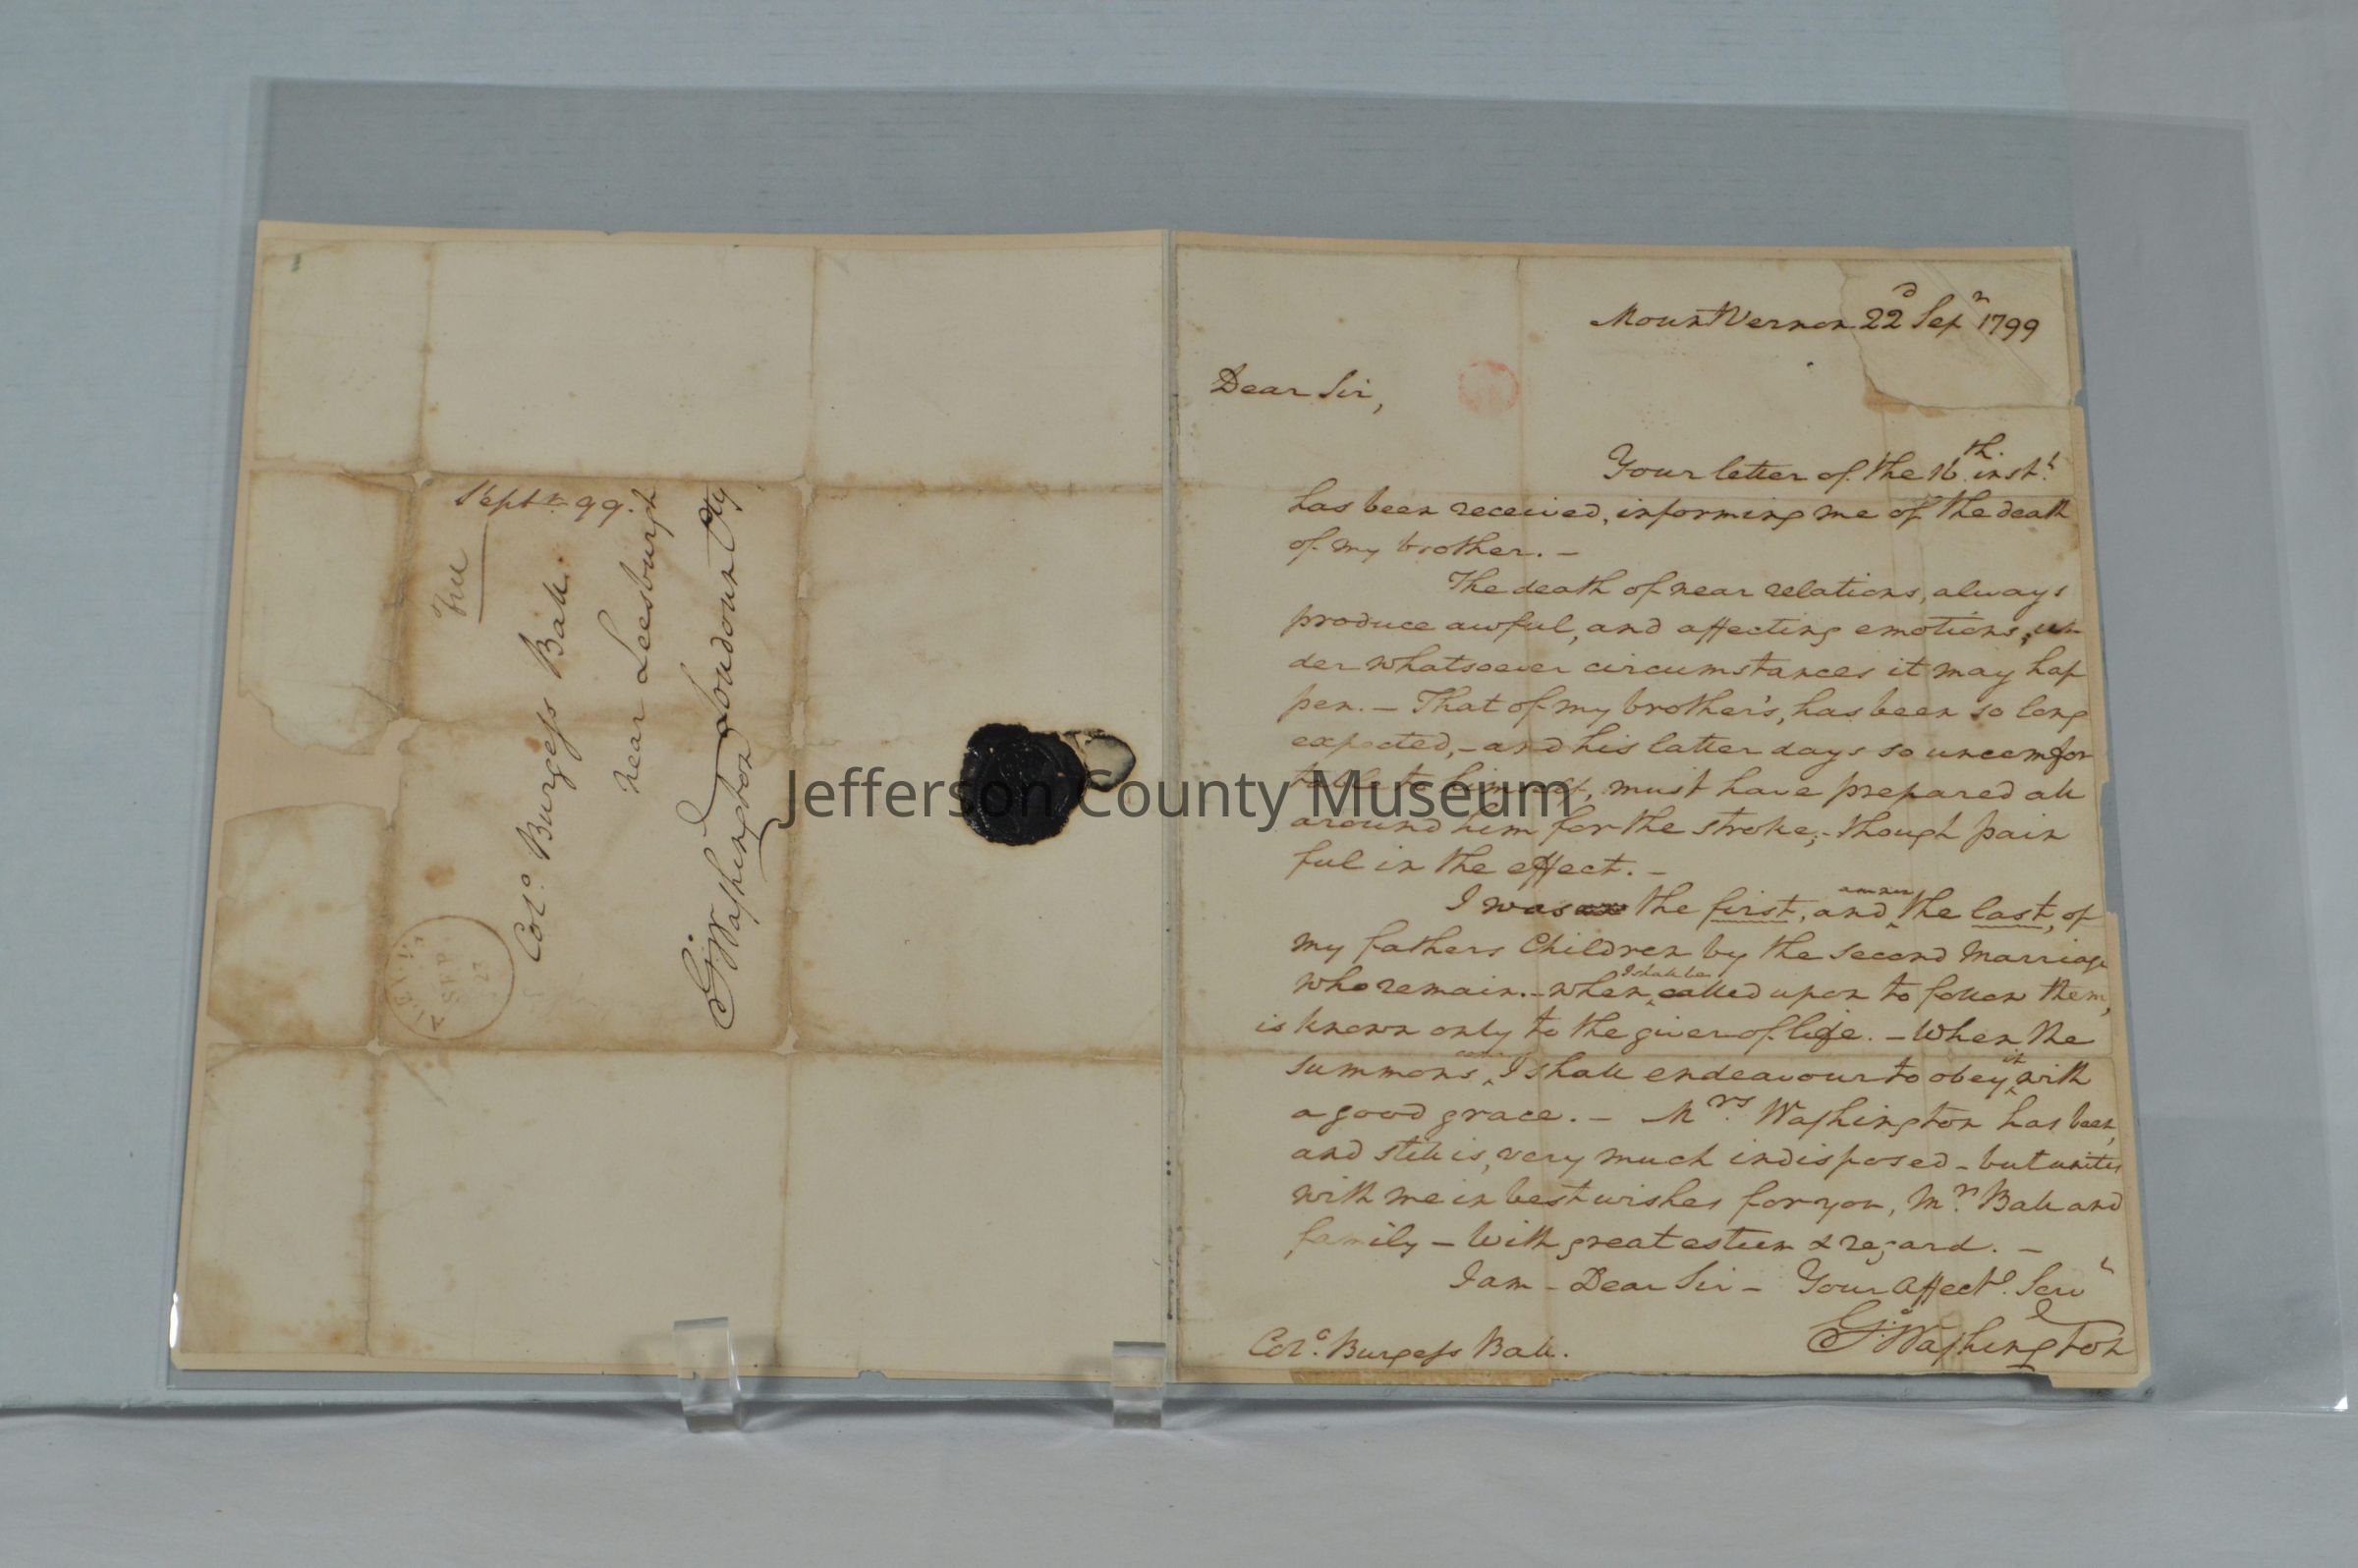 Sept.r 99.
Free
Colo. Burgess Ball.
near Leesburgh
Loudoun Cty
Go: Washington
SEP
23
Jefferson County Museum
Mount Vernon 22d Sepr 1799
Dear Sir,
Your letter of the 16th. inst.t
has been received, informing me of the death
of my brother. –
The death of near relations, always
produce awful, and affecting emotions, un-
der whatsoever circumstances it may hap
pen. – That of my brother's, has been so long
expected, – and his latter days so uncomfor
table to himself, must have prepared all
around him for the stroke; – though pain
ful in the effect. –
I was the first, and am now the last, of
my fathers Children by the second marriage
who remain. – when I shall be called upon to follow them,
is known only to the giver of life. – When the
summons comes I shall endeavour to obey it with
a good grace. – Mrs. Washington has been,
and still is, very much indisposed – but unites
with me in best wishes for you, Mrs. Ball and
family – With great esteem & regard. –
I am – Dear Sir – Your Affecte. Servt
Go: Washington
Colo. Burgess Ball.